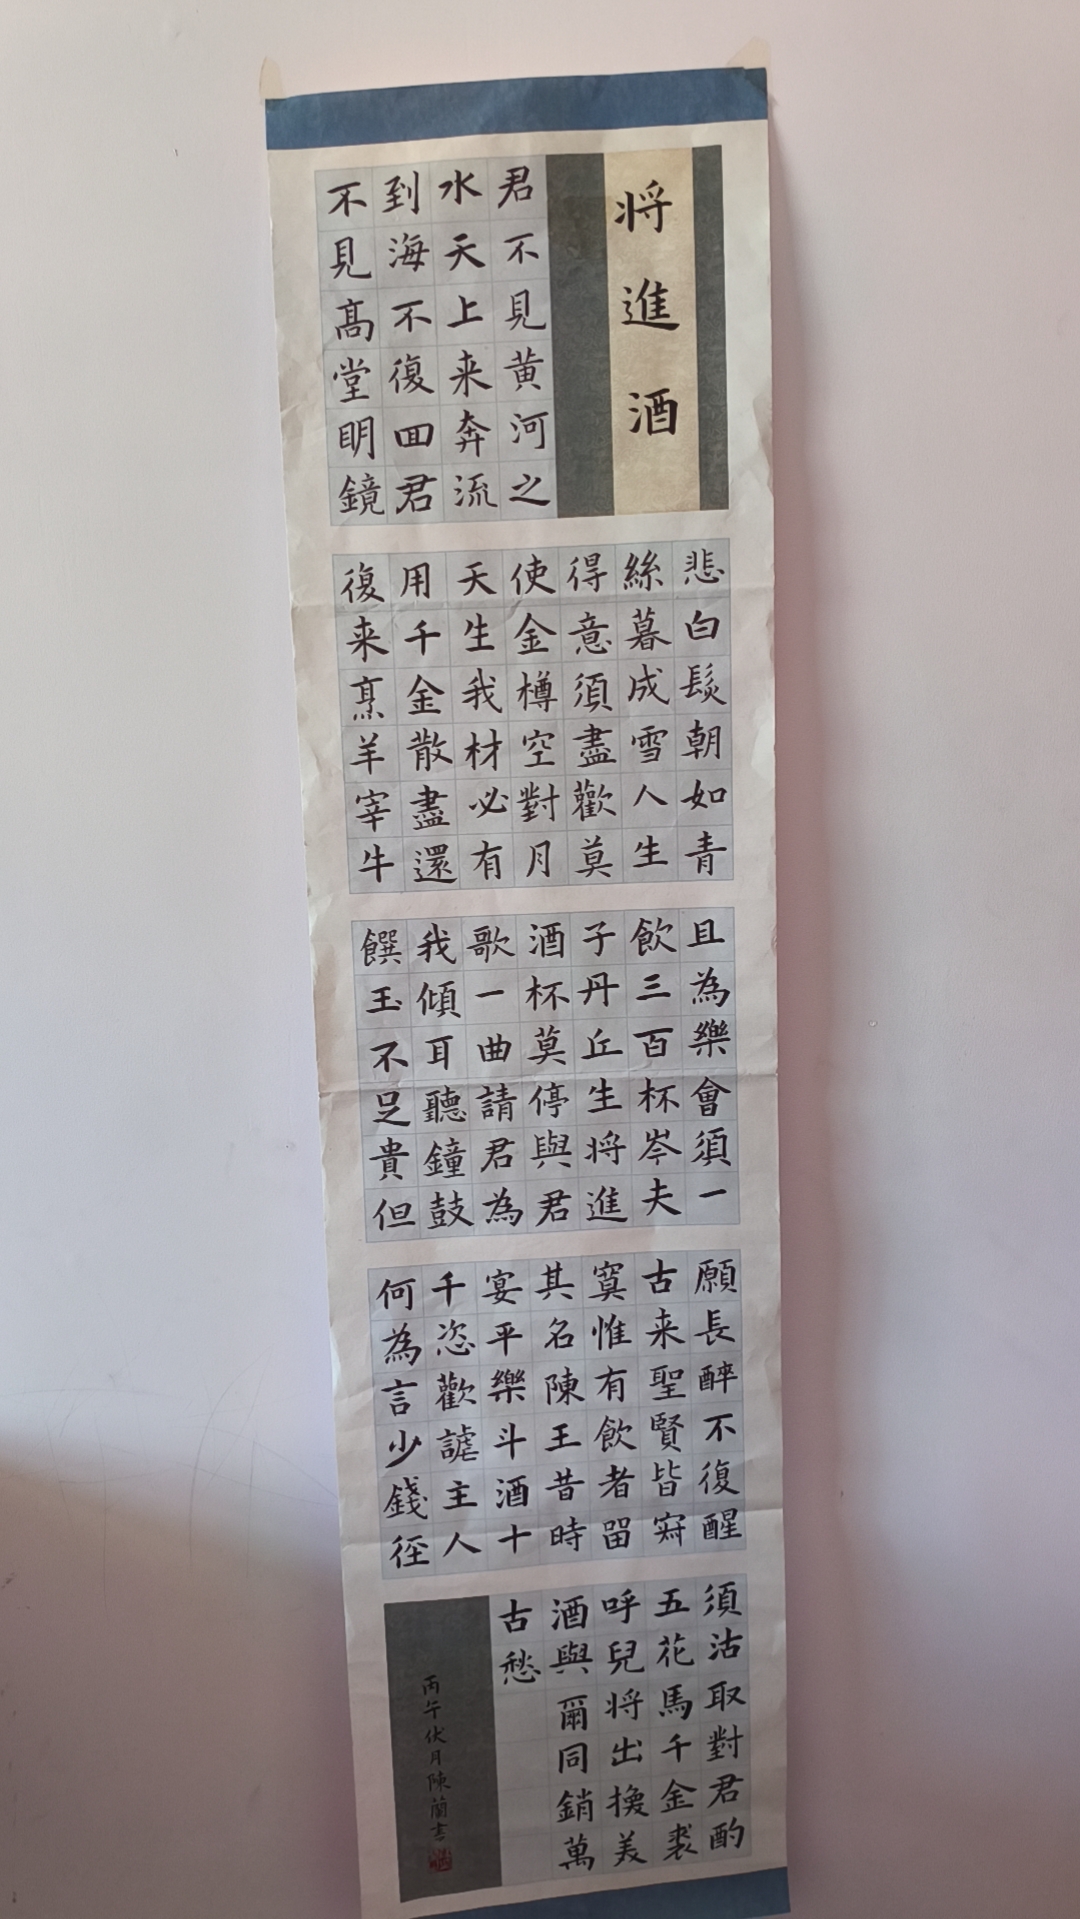 将進酒
君不見黄河之
水天上来奔流
到海不復囬君
不見髙堂眀鏡
悲白髮朝如青
絲暮成雪人生
得意須盡歡莫
使金樽空對月
天生我材必有
用千金散盡還
復来烹羊宰牛
且為樂會須一
飲三百杯岑夫
子丹丘生将進
酒杯莫停與君
歌一曲請君為
我傾耳聽鐘鼓
饌玉不足貴但
願長醉不復醒
古来聖賢皆寂
寞惟有飲者留
其名陳王昔時
宴平樂斗酒十
千恣歡謔主人
何為言少錢径
須沽取對君酌
五花馬千金裘
呼兒将出換美
酒與爾同銷萬
古愁
丙午伏月陳蘭書